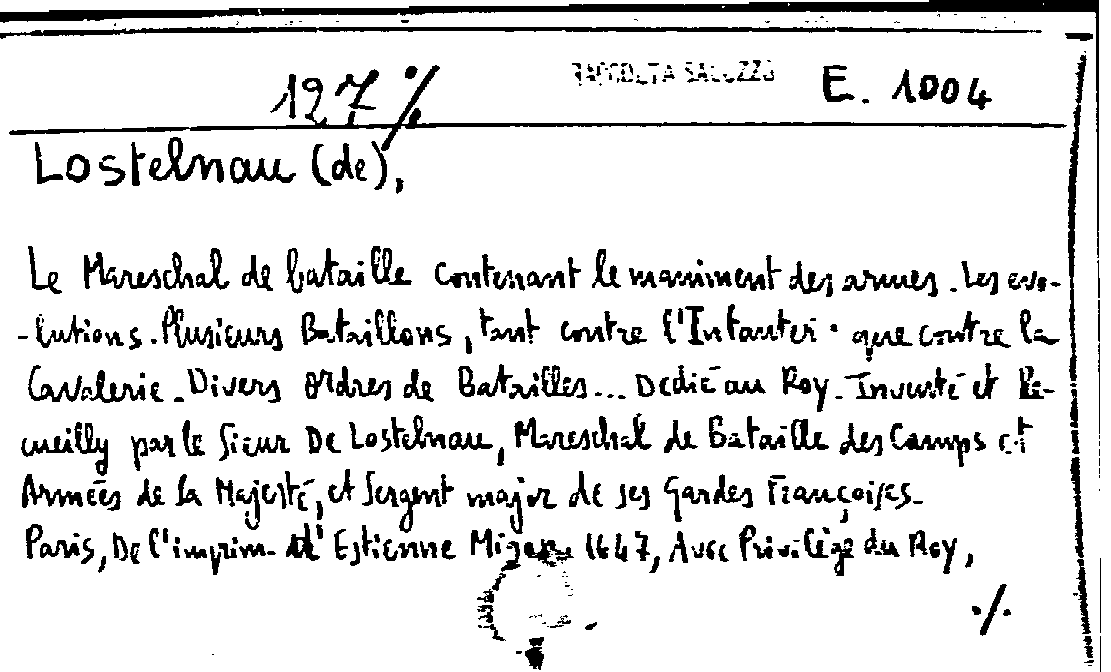 127 ·/· RACCOLTA SALUZZO E. 1004
Lostelnau (de),
Le Mareschal de bataille contenant le maniment des armes. Les evo-
-lutions. Plusieurs Bataillons, tant contre l'Infanter. que contre la
Cavalerie. Divers ordres de Batailles... Dedié au Roy. Inventé et Re-
cueilly par le Sieur De Lostelnau, Mareschal de Bataille des Camps et
Armées de Sa Majesté, et Sergent major de ses Gardes Françoises.
Paris, De l'imprim. d'Estienne Migon 1647, Avec Privilège du Roy,
·/·